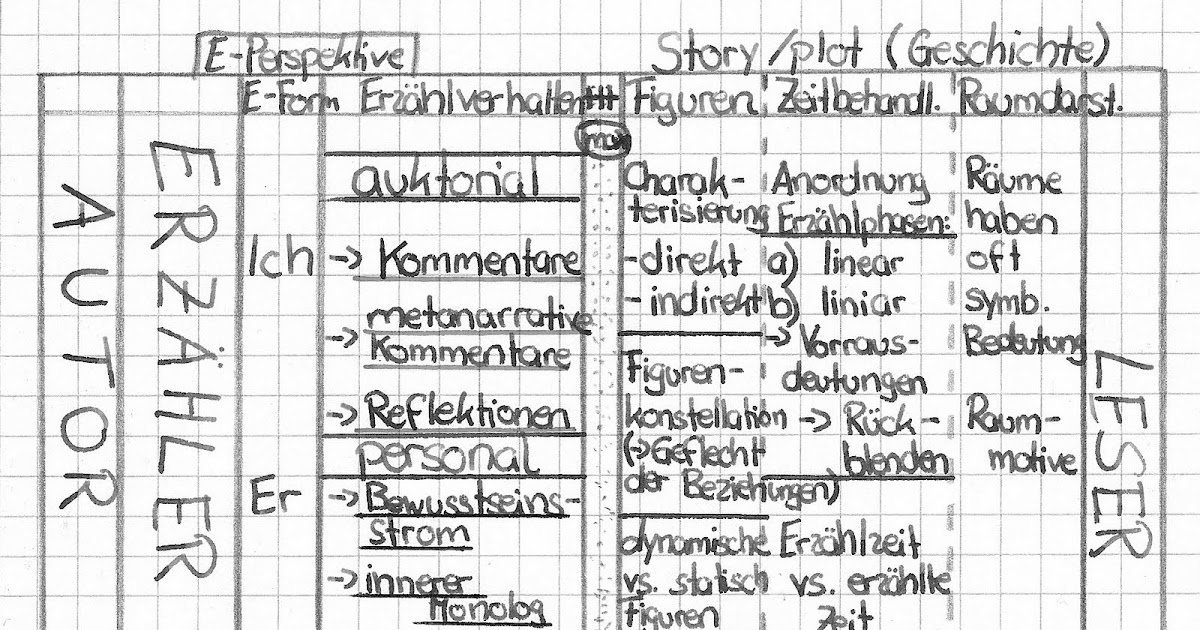 E-Perspektive
Story/plot (Geschichte)
E-Form
Erzählverhalten
Figuren
Zeitbehandl.
Raumdarst.
AUTOR
ERZÄHLER
Ich
Er
auktorial
-> Kommentare
-> metanarrative
Kommentare
-> Reflektionen
personal
-> Bewusstseins-
strom
-> innerer
Monolog
Charak-
terisierung
-direkt
-indirekt
Figuren-
konstellation
(->Geflecht
der Beziehungen)
dynamische
vs. statisch
Figuren
Anordnung
Erzählphasen:
a) linear
b) liniar
-> Vorraus-
deutungen
-> Rück-
blenden
Erzählzeit
vs. erzählte
Zeit
Räume
haben
oft
symb.
Bedeutung
Raum-
motive
LESER